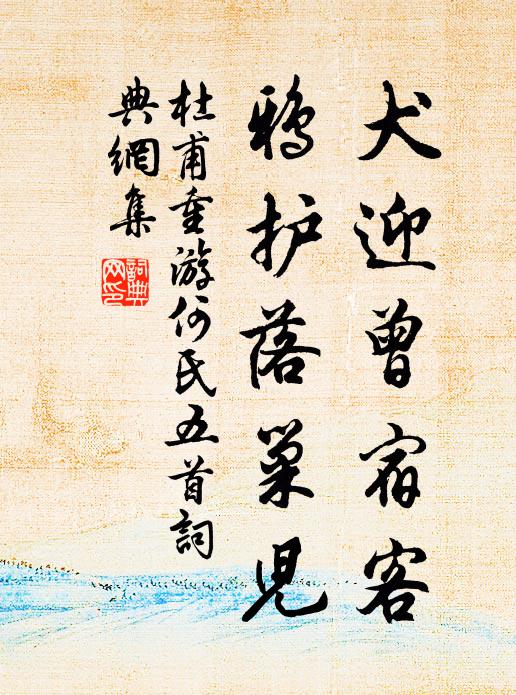 犬迎曾宿客
鸦护落巢児
杜甫重游何氏五首詞
典網集
詞典
网印